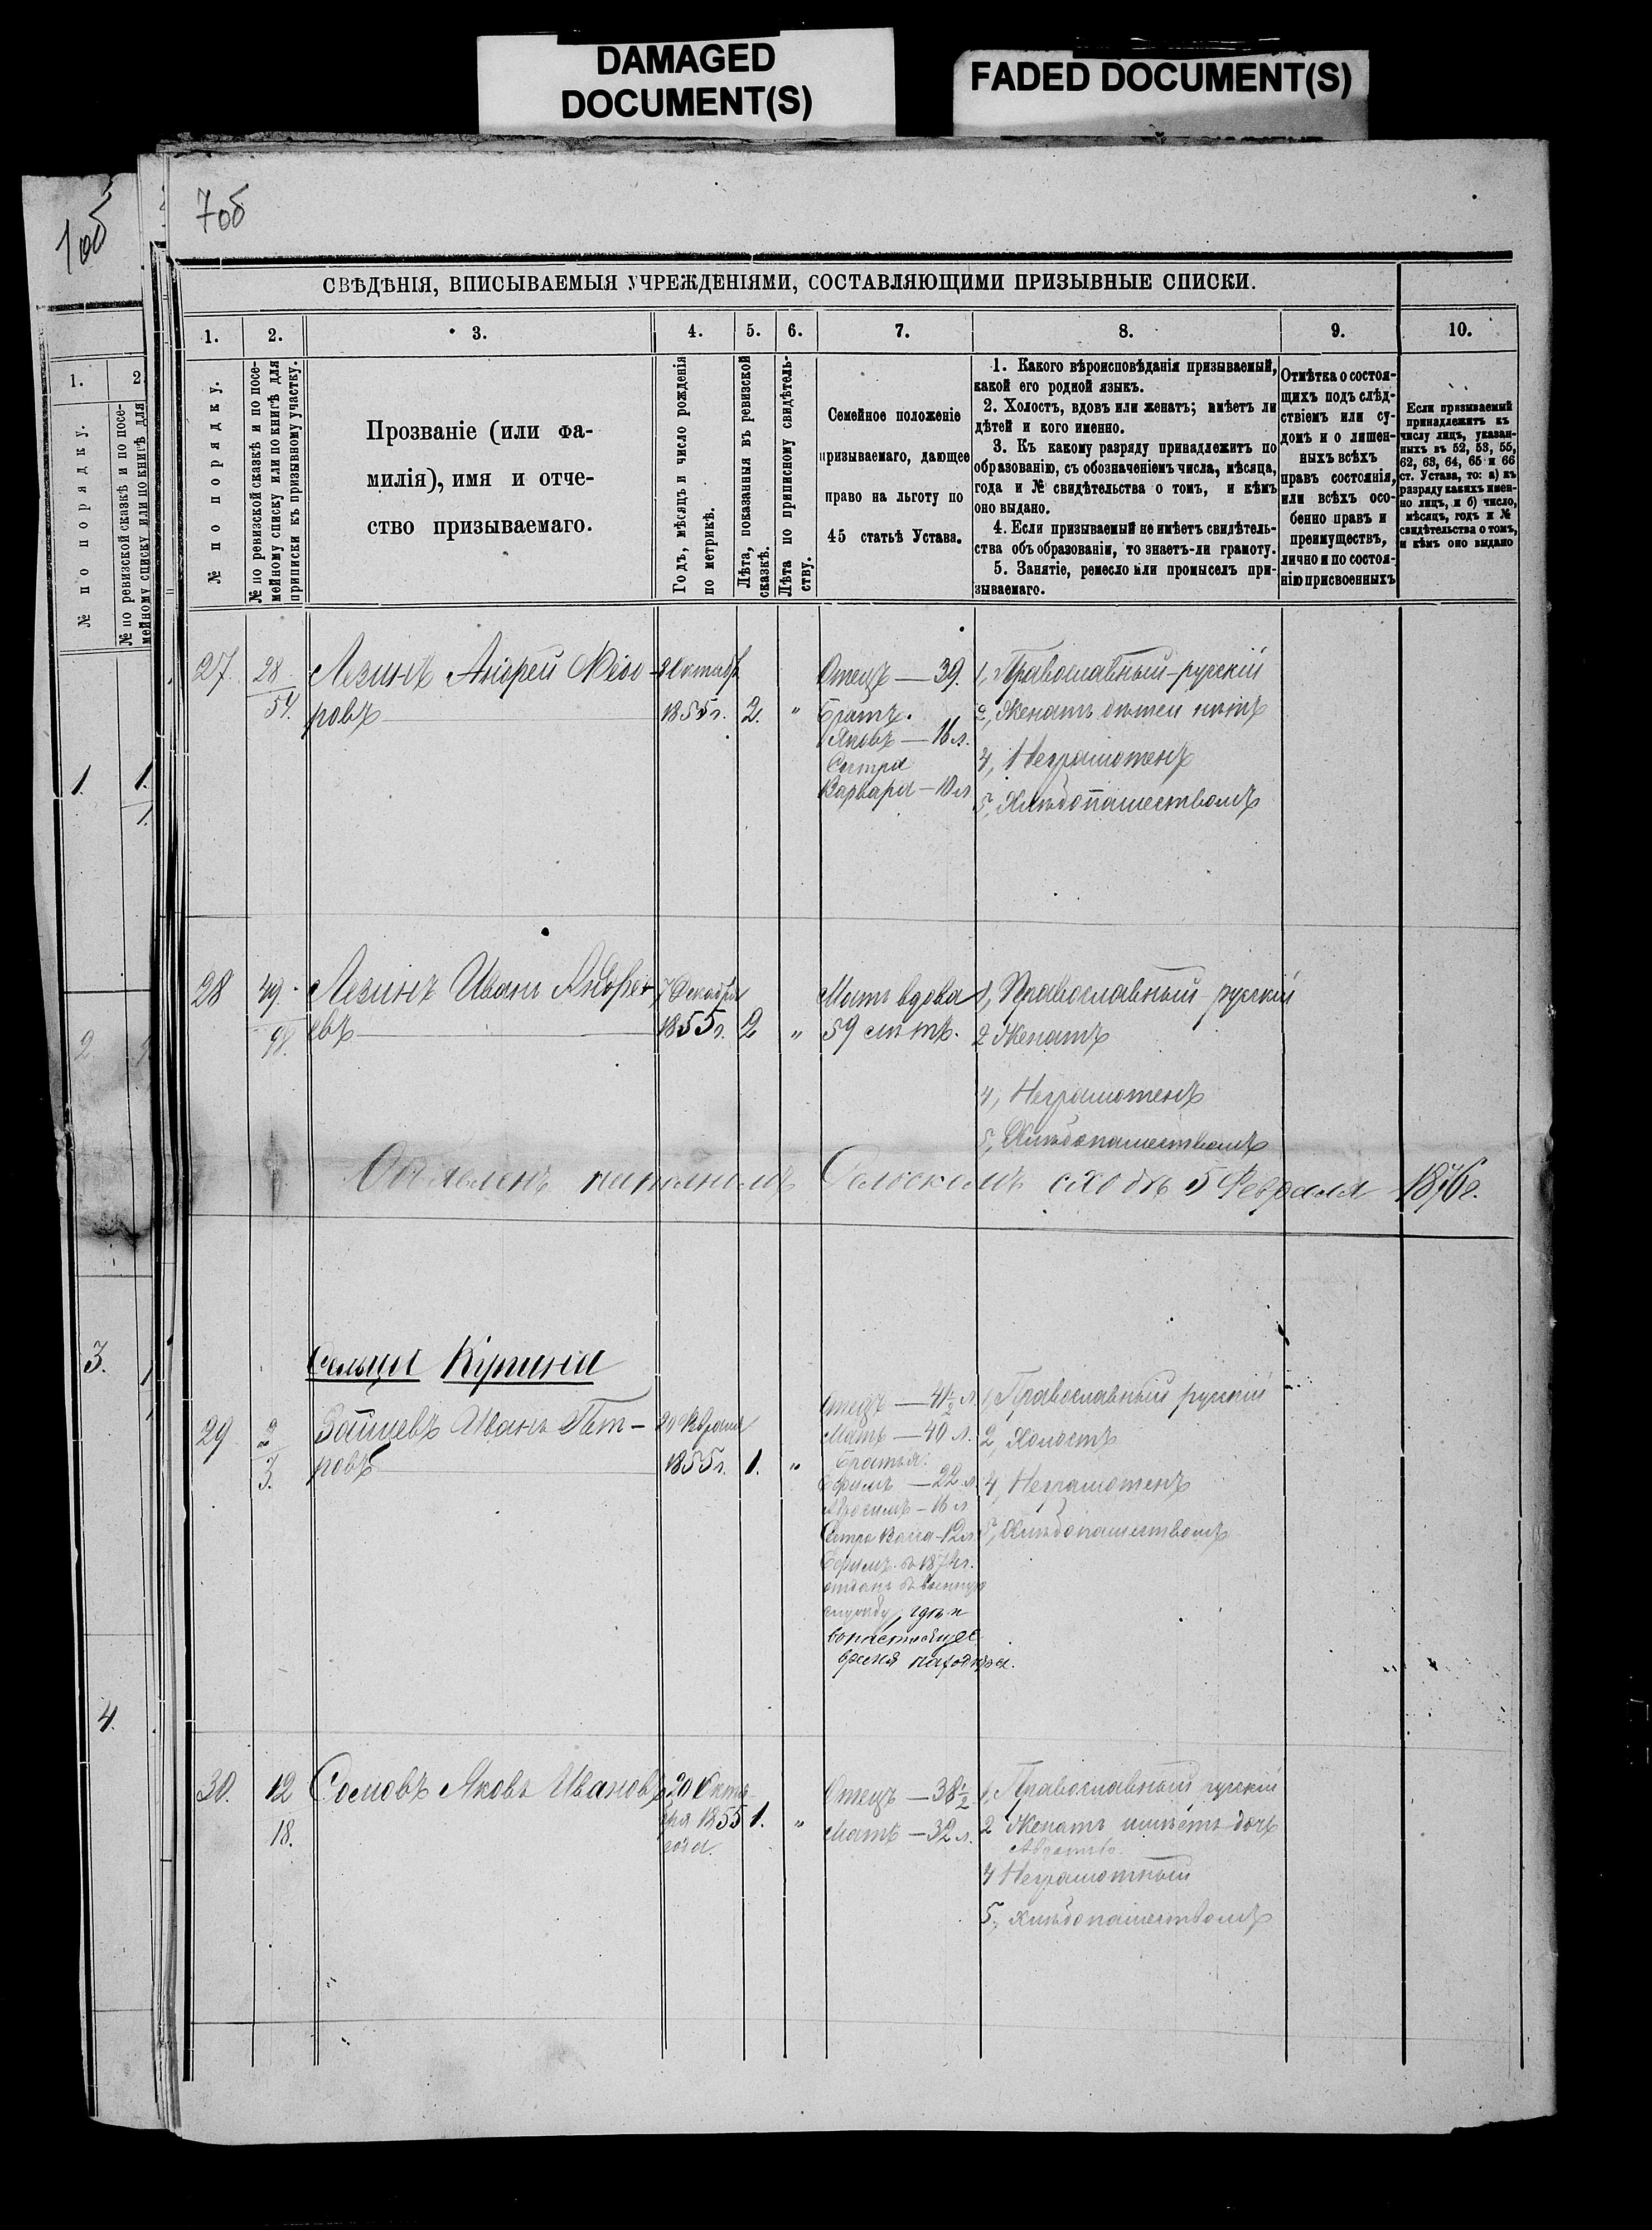 DAMAGED
DOCUMENT(S)
FADED DOCUMENT(S)
1об
7об
СВѢДѢНІЯ, ВПИСЫВАЕМЫЯ УЧРЕЖДЕНІЯМИ, СОСТАВЛЯЮЩИМИ ПРИЗЫВНЫЕ СПИСКИ.
1. 2. 3. 4. 5. 6. 7. 8. 9. 10.
№ по порядку.
№ по ревизской сказкѣ и по посе-
мейному списку или по книгѣ для
приписки къ призывному участку.
Прозваніе (или фа-
милія), имя и отче-
ство призываемаго.
Годъ, мѣсяцъ и число рожденія
по метрикѣ.
Лѣта, показанныя въ ревизской
сказкѣ.
Лѣта по приписному свидѣтель-
ству.
Семейное положеніе
призываемаго, дающее
право на льготу по
45 статьѣ Устава.
1. Какого вѣроисповѣданія призываемый,
какой его родной языкъ.
2. Холостъ, вдовъ или женатъ; имѣетъ ли
дѣтей и кого именно.
3. Къ какому разряду принадлежитъ по
образованію, съ обозначеніемъ числа, мѣсяца,
года и № свидѣтельства о томъ, и кѣмъ
оно выдано.
4. Если призываемый не имѣетъ свидѣтель-
ства объ образованіи, то знаетъ-ли грамоту.
5. Занятіе, ремесло или промыселъ при-
зываемаго.
Отмѣтка о состоя-
щихъ подъ слѣд-
ствіемъ или су-
домъ и о лишен-
ныхъ всѣхъ
правъ состоянія,
или всѣхъ осо-
бенно правъ и
преимуществъ,
лично и по состоя-
нію присвоенныхъ
Если призываемый
принадлежитъ къ
числу лицъ, указан-
ныхъ въ 52, 53, 55,
62, 63, 64, 65 и 66
ст. Устава, то: а) къ
разряду какихъ имен-
но лицъ, и б) число,
мѣсяцъ, годъ и №
свидѣтельства о томъ,
и кѣмъ оно выдано
1. 2
№ по порядку.
№ по ревизской сказкѣ и по посе-
мейному списку или по книгѣ для
1. 1.
2
3.
4.
27. 28
54.
Лезинъ Андрей Ѳедо-
ровъ
Октябр
1855 г. 2. "
Отецъ — 39.
Братъ
Яковъ — 16 л.
Сестра
Варвара — 10 л
1, Православный русскій
2, Женатъ дѣтей нѣтъ
4, Неграмотенъ
5, Хлѣбопашествомъ
28 49
98.
Лезинъ Иванъ Андре-
евъ
7 Декабря
1855 г. 2 "
Мать вдова
59 лѣтъ.
1, Православный русскій
2 Женатъ
4, Неграмотенъ
5, Хлѣбопашествомъ
Объявленъ на полномъ Сельскомъ сходѣ 5 Февраля 1876 г.
Сельца
29 2
3.
Зайцевъ Иванъ Пет-
ровъ
20 Февраля
1855 г. 1. "
Отецъ — 41½ л
Мать — 40 л.
Братья:
Ефимъ — 22 л.
16 л
Сестра 12 л
Ефимъ въ 1874 г.
отданъ въ военную
службу, гдѣ и
въ настоящее
время находится.
1, Православный русскій
2, Холостъ
4, Неграмотенъ
5, Хлѣбопашествомъ
30. 12
18.
Сомовъ Яковъ Ивановъ
20 Октя-
бря 1855
года.
1. "
Отецъ — 38½
Мать — 32 л.
1, Православный русскій
2 Женатъ имѣетъ дочь
4 Неграмотный
5, хлѣбопашествомъ